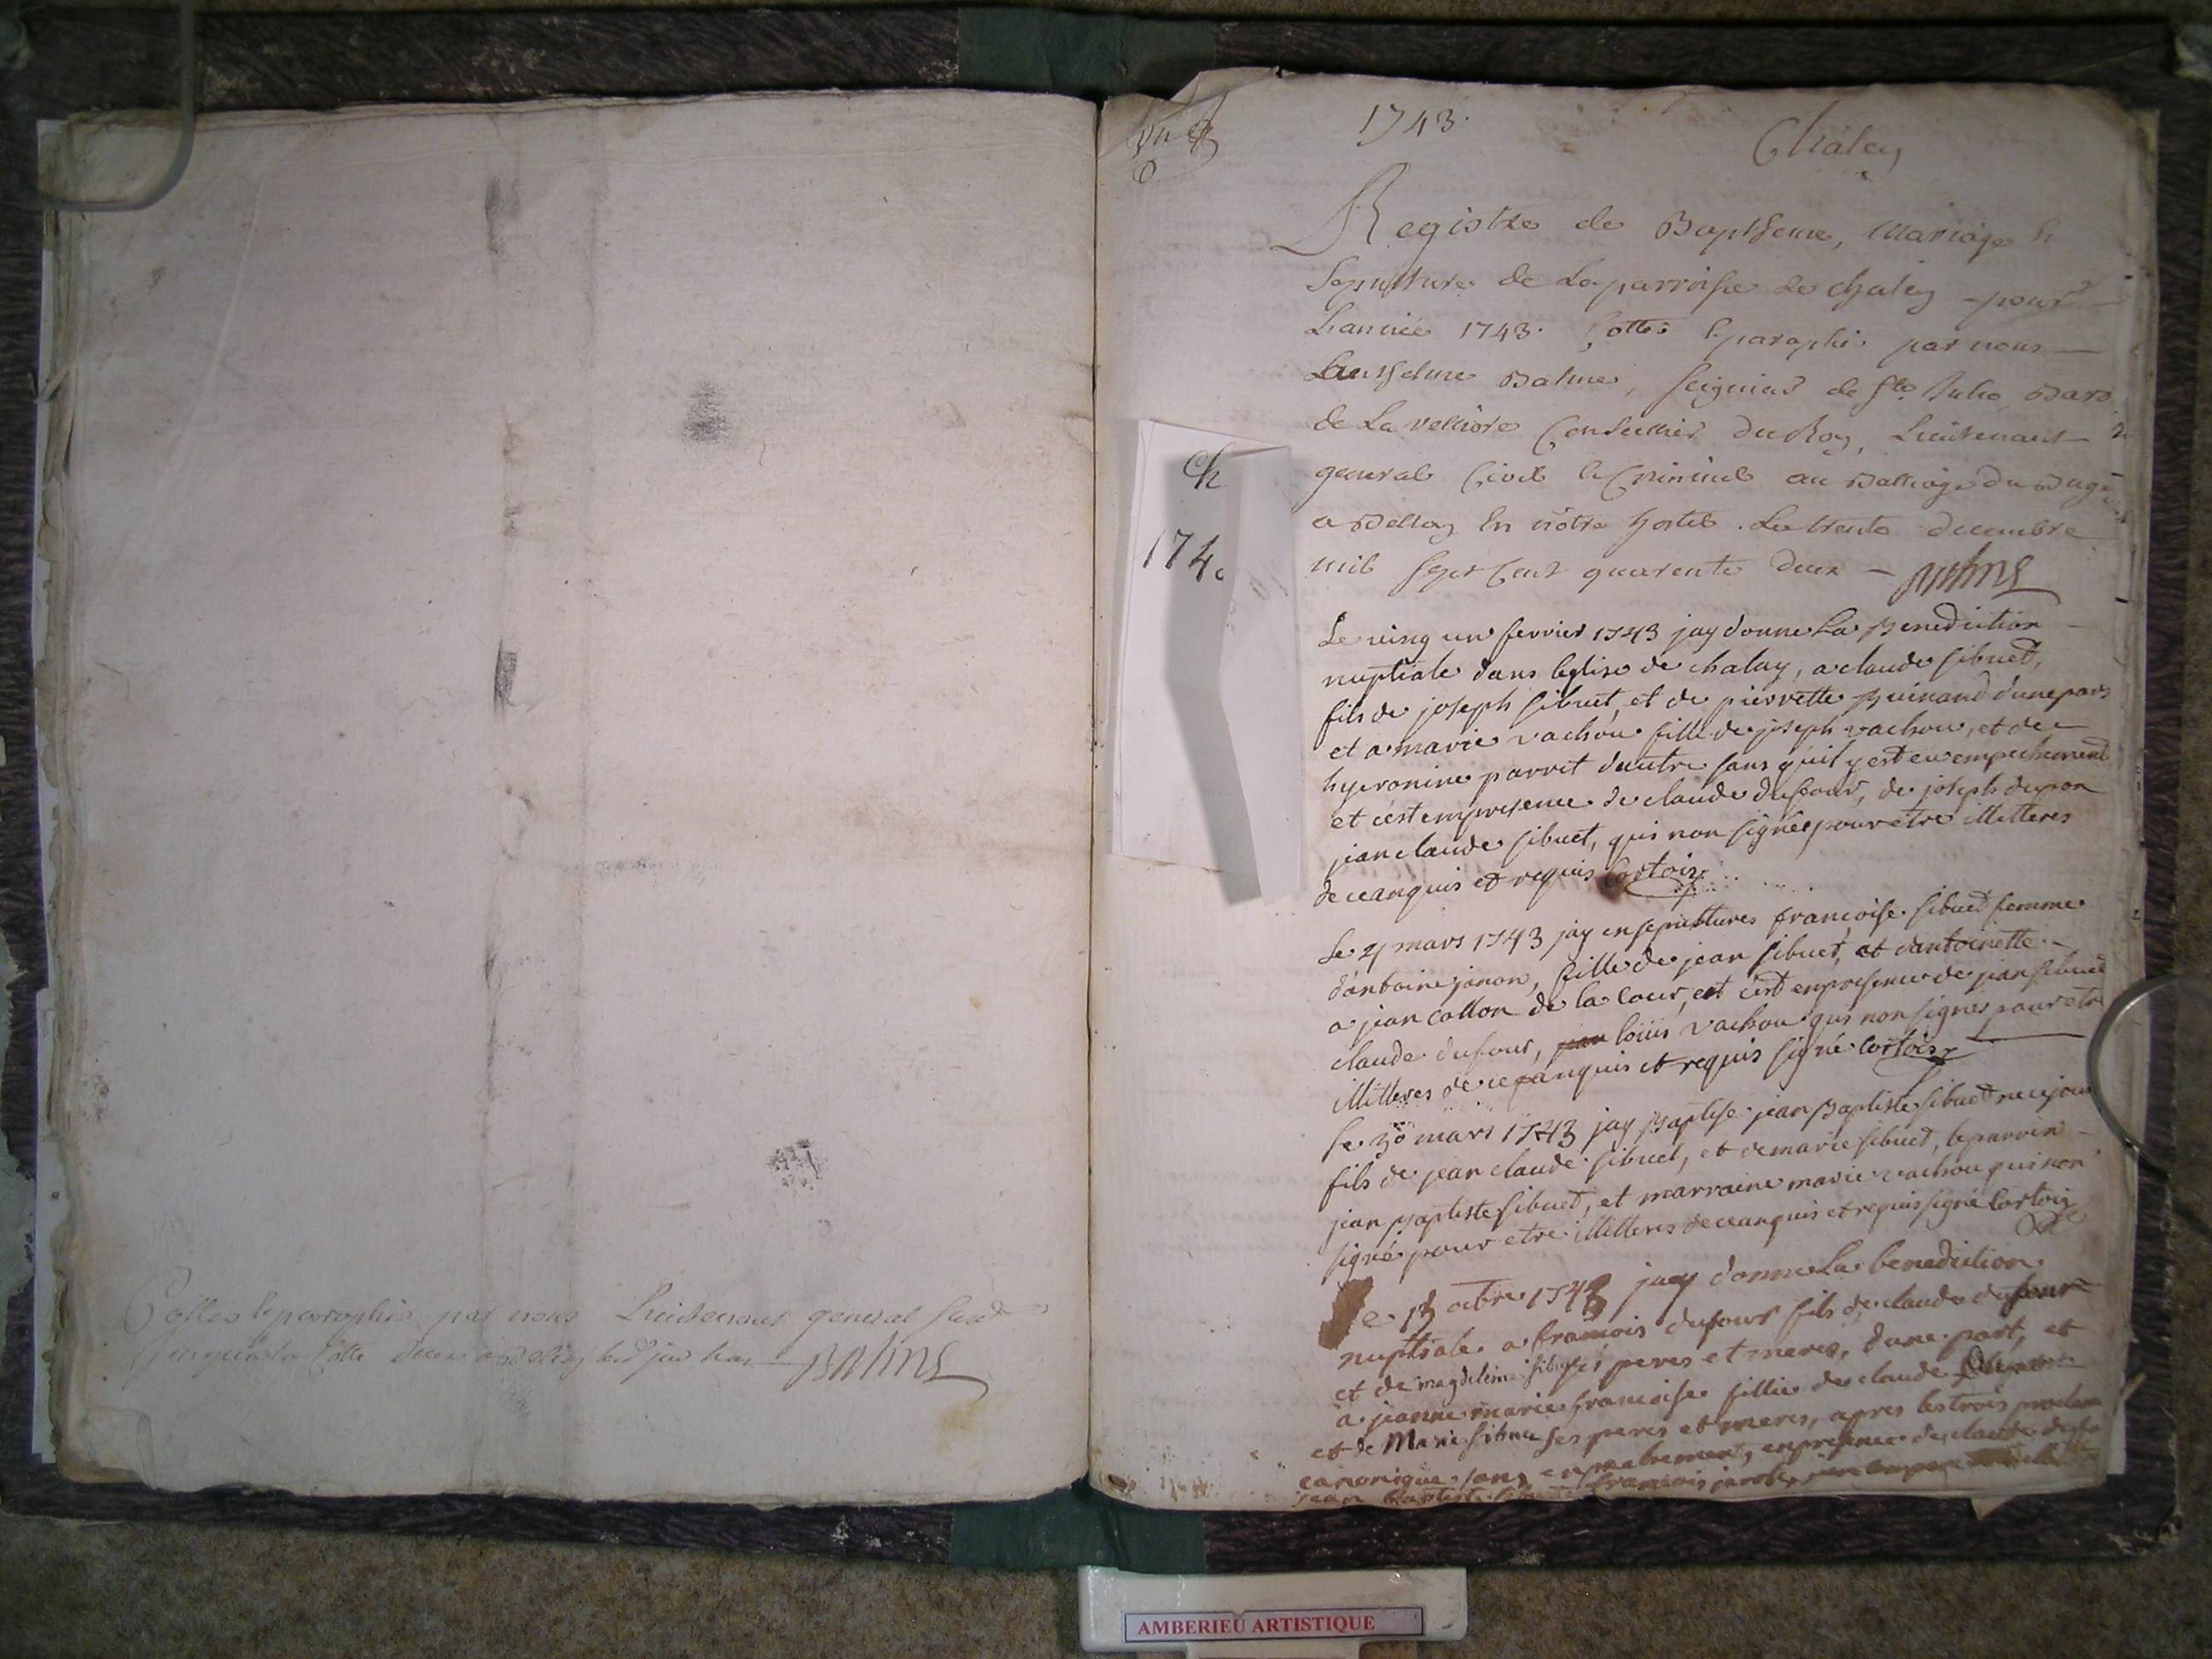 Cottes et paraphé par nous Lieutenant general
Balme
un
1743.
Chaley
Registre de Baptseme, Mariage et
Sepulture de La parroisse de Chaley - pour
L'année 1743. Cotté et paraphé par nous
Anthelme Balme, seigneur de Ste Julie
de La velliere Conseiller du Roy, Lieutenant
general Civil et Criminel au Balliage du Bugey
a Belley En nôtre hostel. Le trente decembre
mil sept cent quarente deux - Balme
Ch
174
Le ving un fevrier 1743 jay donne La Benediction
nuptiale dans leglise de chaley, a claude sibuet,
fils de joseph sibuet, et de pierrette Buinand dune part
et a marie vachou fille de joseph vachou, et de
hyeronime parret dautre sans quil y est eu empechement
et cest empresence de claude dufour, de joseph dupon
jean claude sibuet, qui non signée pour etre illitteres
de ce anquis et requis Cortois
Le 21 mars 1743 jay ensepultures francoise sibuet femme
d'antoine janon, fille de jean sibuet, et dantoinette
a jean collon de la cour, et cest empresence de jean sibuet
claude dufour, jean loüis vachou qui non signes pour etre
illitteres de ce anquis et requis signé Cortois
Le 30 mars 1743 jay Baptise jean Baptiste sibuet ne ce jour
fils de jean claude sibuet, et de marie sibuet, le parrin
jean Baptiste sibuet, et marraine marie vachou qui non
signé pour etre illitteres de ce anquis et requis signe Cortois
Le 13 octbre 1743 jaey donne La benediction
nuptiale a francois dufour fils de claude dufour
et de magdeleine sibuet ses peres et meres, dune part, et
a jeanne marie francoise fillie de claude
et de Marie sibuet ses peres et meres, apres les trois
canonique sans empechement, en presence de claude
jean Baptiste francois
AMBERIEU ARTISTIQUE